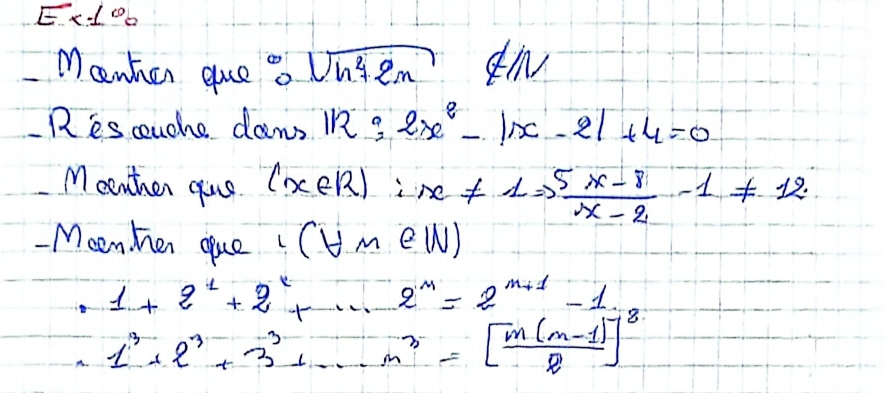 Ex1:
- Montrer que : √(n²+2n) ∉ ℕ
- Résoudre dans ℝ : 2x² - |x - 2| + 4 = 0
- Montrer que (x∈ℝ) : x ≠ 1 ⇒ (5x - 8)/(x - 2) - 1 ≠ 12
- Montrer que : (∀ n ∈ ℕ)
. 1 + 2¹ + 2² + ... 2ⁿ = 2ⁿ⁺¹ - 1
. 1³ + 2³ + 3³ + ... n³ = [n(n-1)/2]²